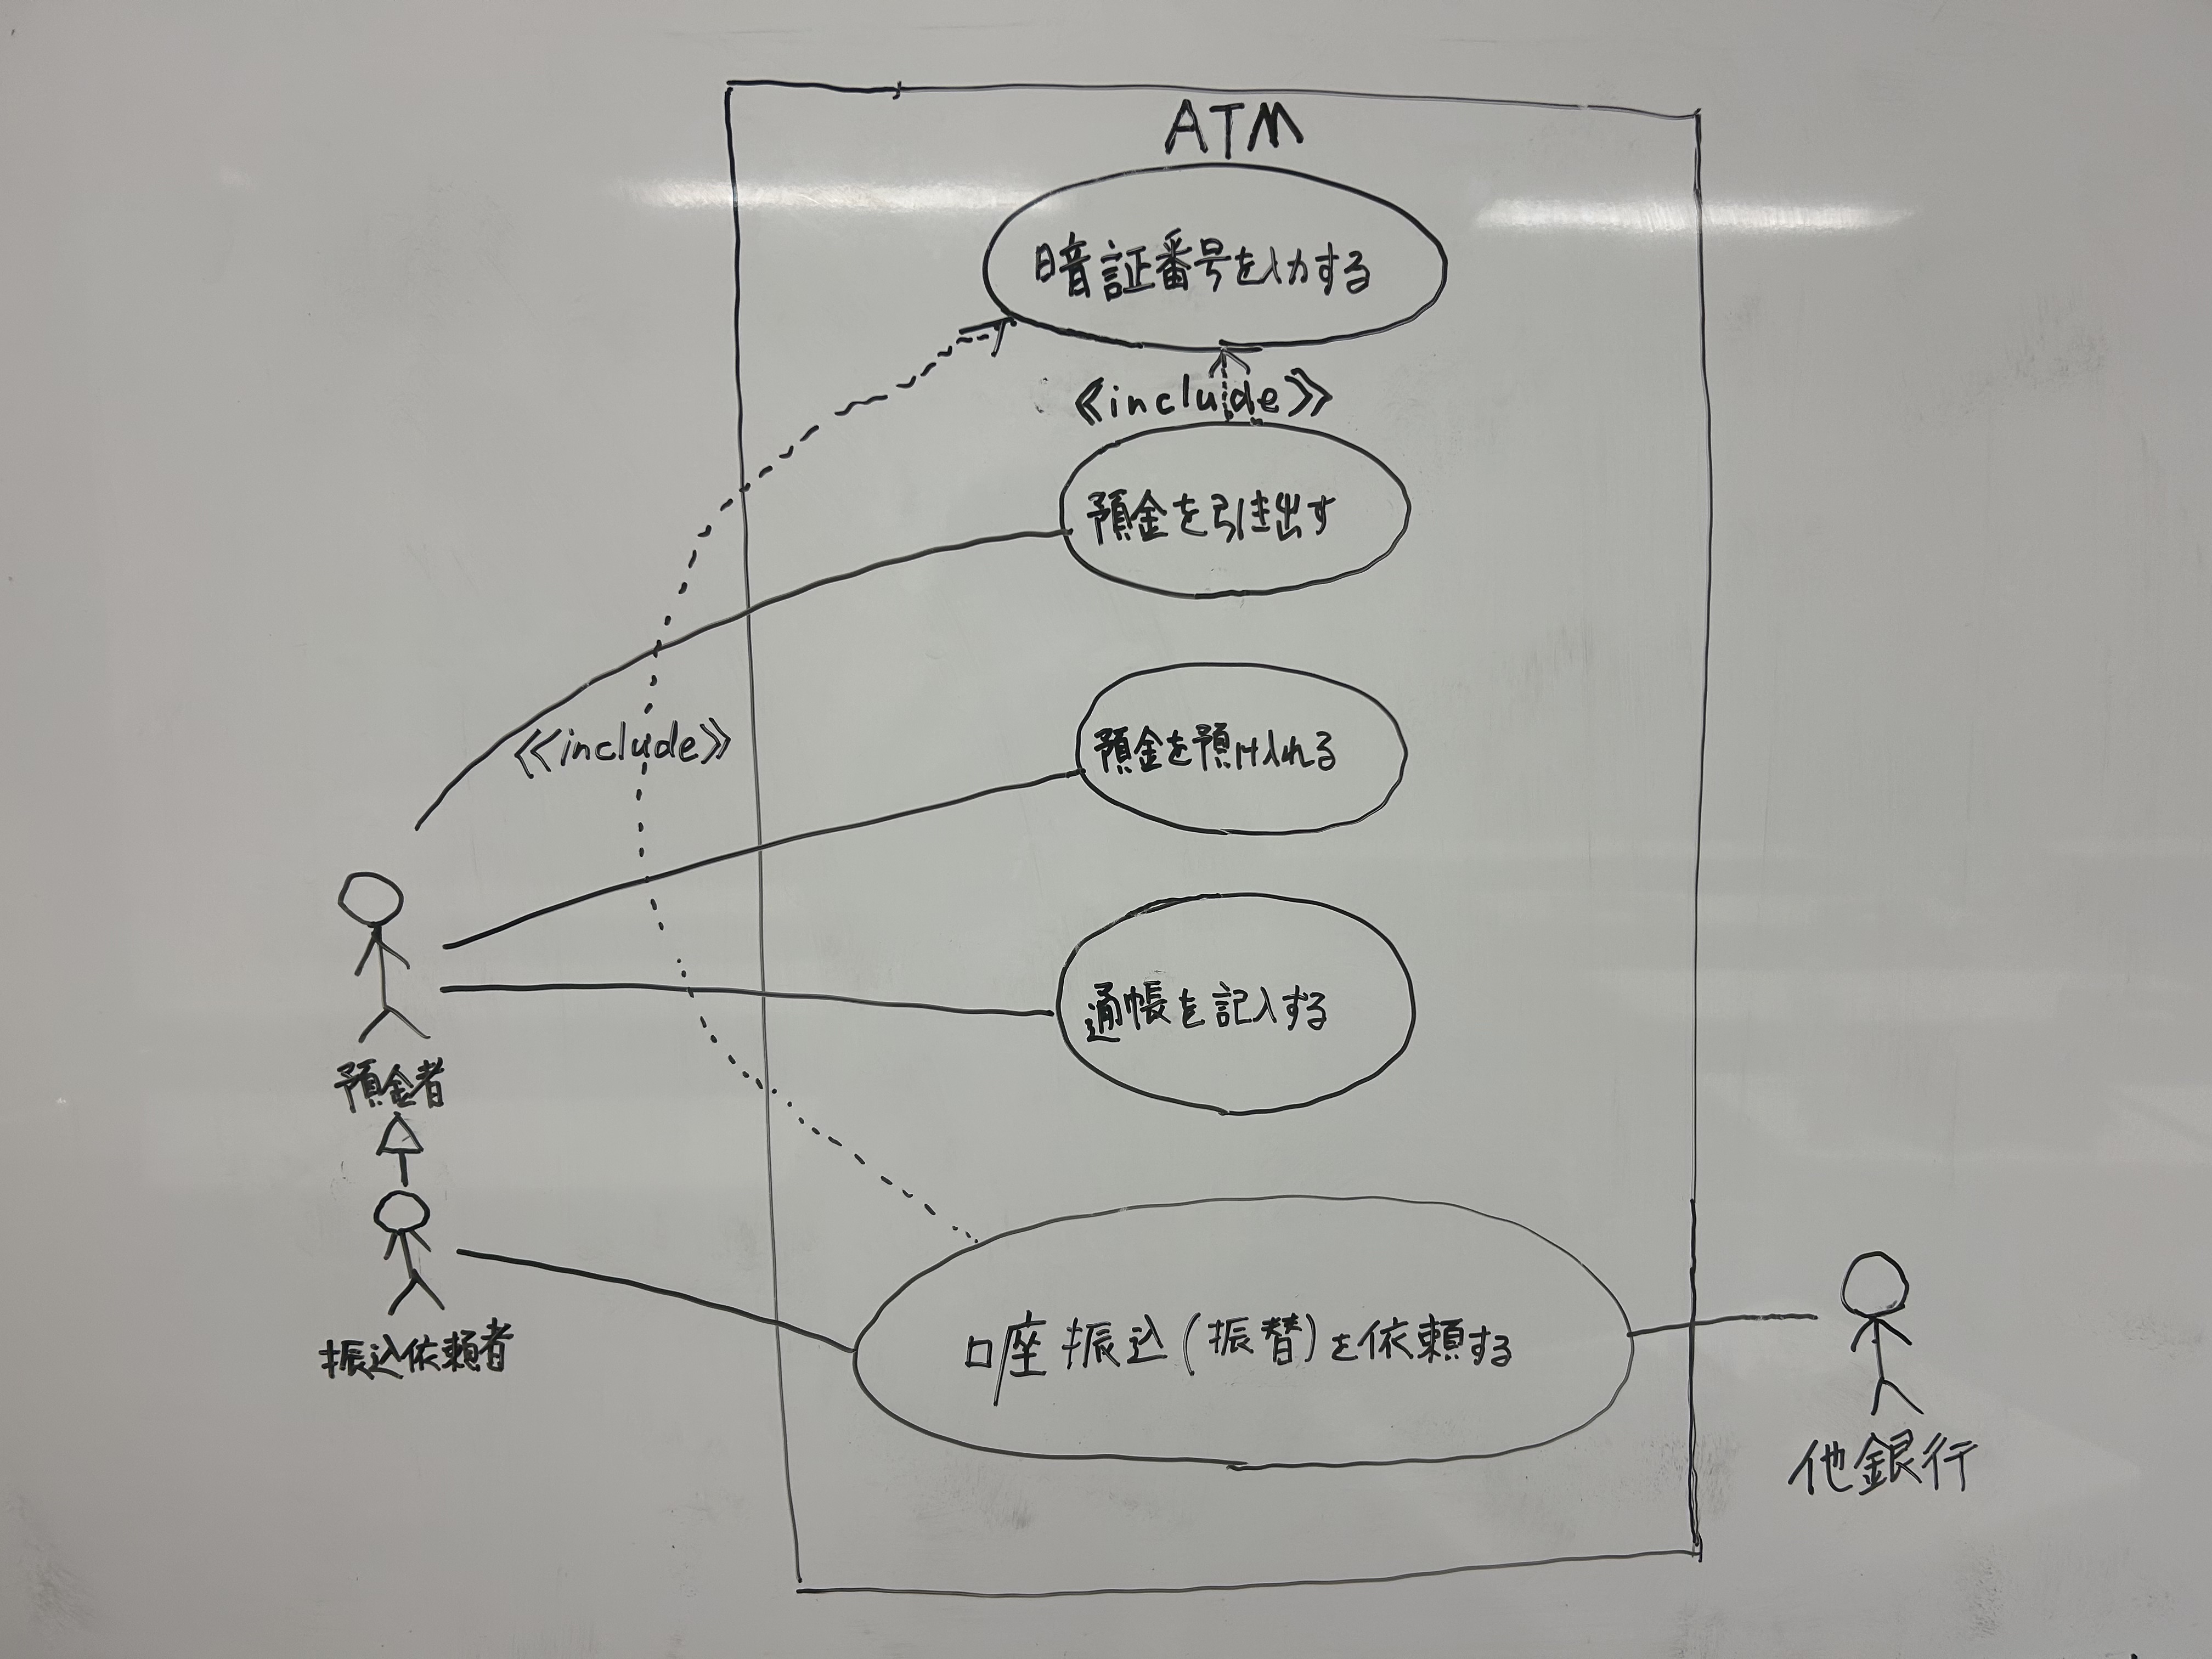 ATM
暗証番号を入力する
≪include≫
預金を引き出す
≪include≫
預金を預け入れる
通帳を記入する
預金者
振込依頼者
口座振込(振替)を依頼する
他銀行